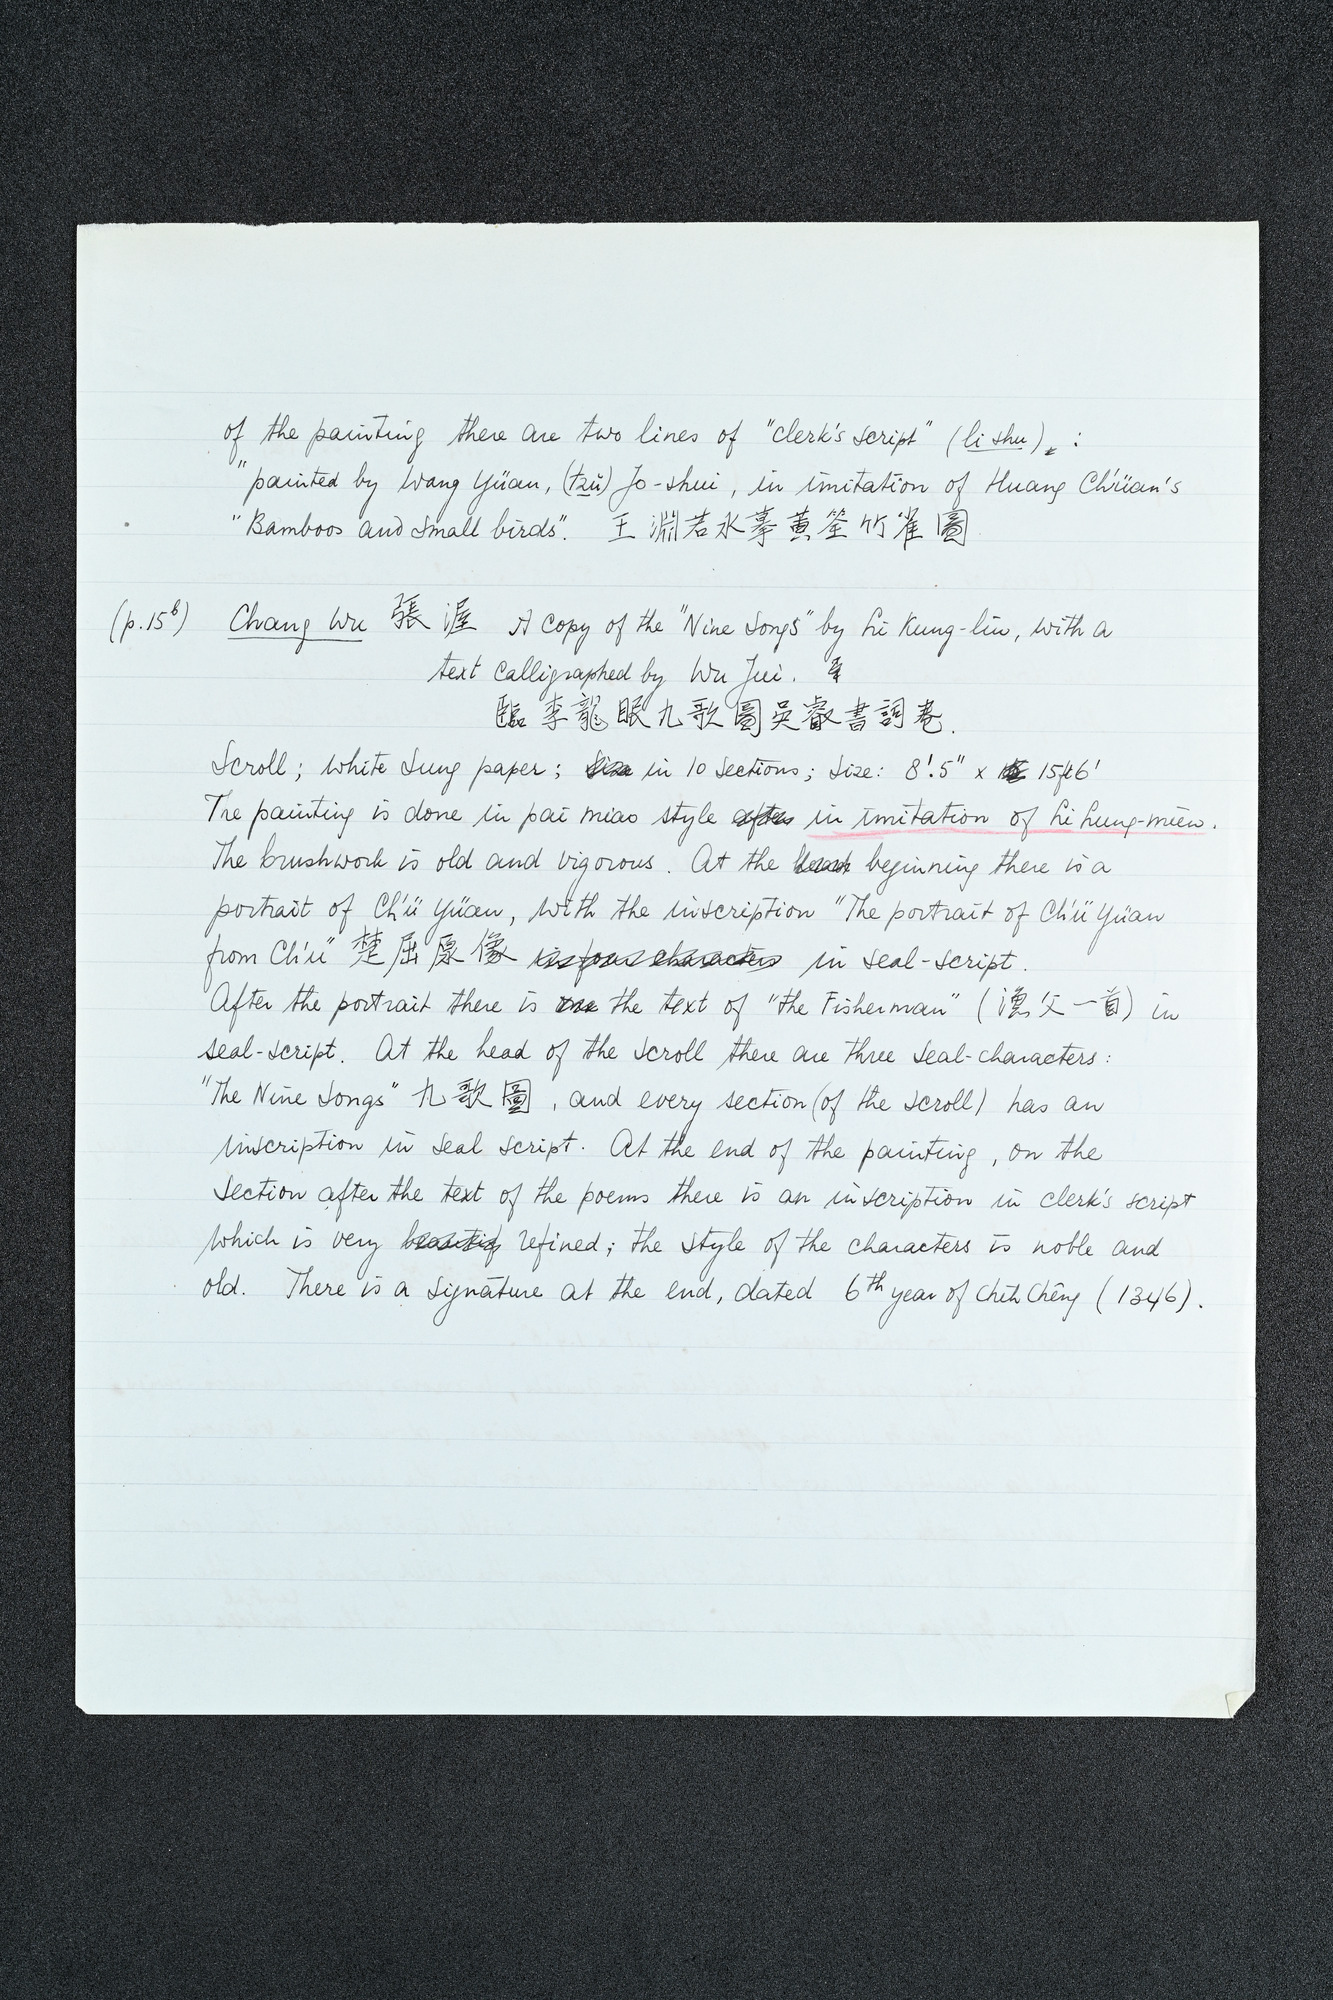 of the painting there are two lines of "clerk's script" (li shu) :
"painted by Wang Yüan, (tzŭ) Jo-shui, in imitation of Huang Ch'üan's
"Bamboos and small birds". 王淵若水摹黃筌竹雀圖
(p. 15b) Chang Wu 張渥 A copy of the "Nine Songs" by Li Kung-lin, with a
text calligraphed by Wu Jui.
臨李龍眠九歌圖吳叡書詞卷.
Scroll; white Sung paper; in 10 sections; size: 8'.5" x 15ft6'
The painting is done in pai miao style after in imitation of Li Lung-mien.
The brushwork is old and vigorous. At the beginning there is a
portrait of Ch'ü Yüan, with the inscription "The portrait of Ch'ü Yüan
from Ch'u" 楚屈原像 in four characters in seal-script.
After the portrait there is the text of "the Fisherman" (漁父一首) in
seal-script. At the head of the scroll there are three seal-characters:
"The Nine Songs" 九歌圖, and every section (of the scroll) has an
inscription in seal script. At the end of the painting, on the
section after the text of the poems there is an inscription in clerk's script
which is very refined; the style of the characters is noble and
old. There is a signature at the end, dated 6th year of Chih Chêng (1346).